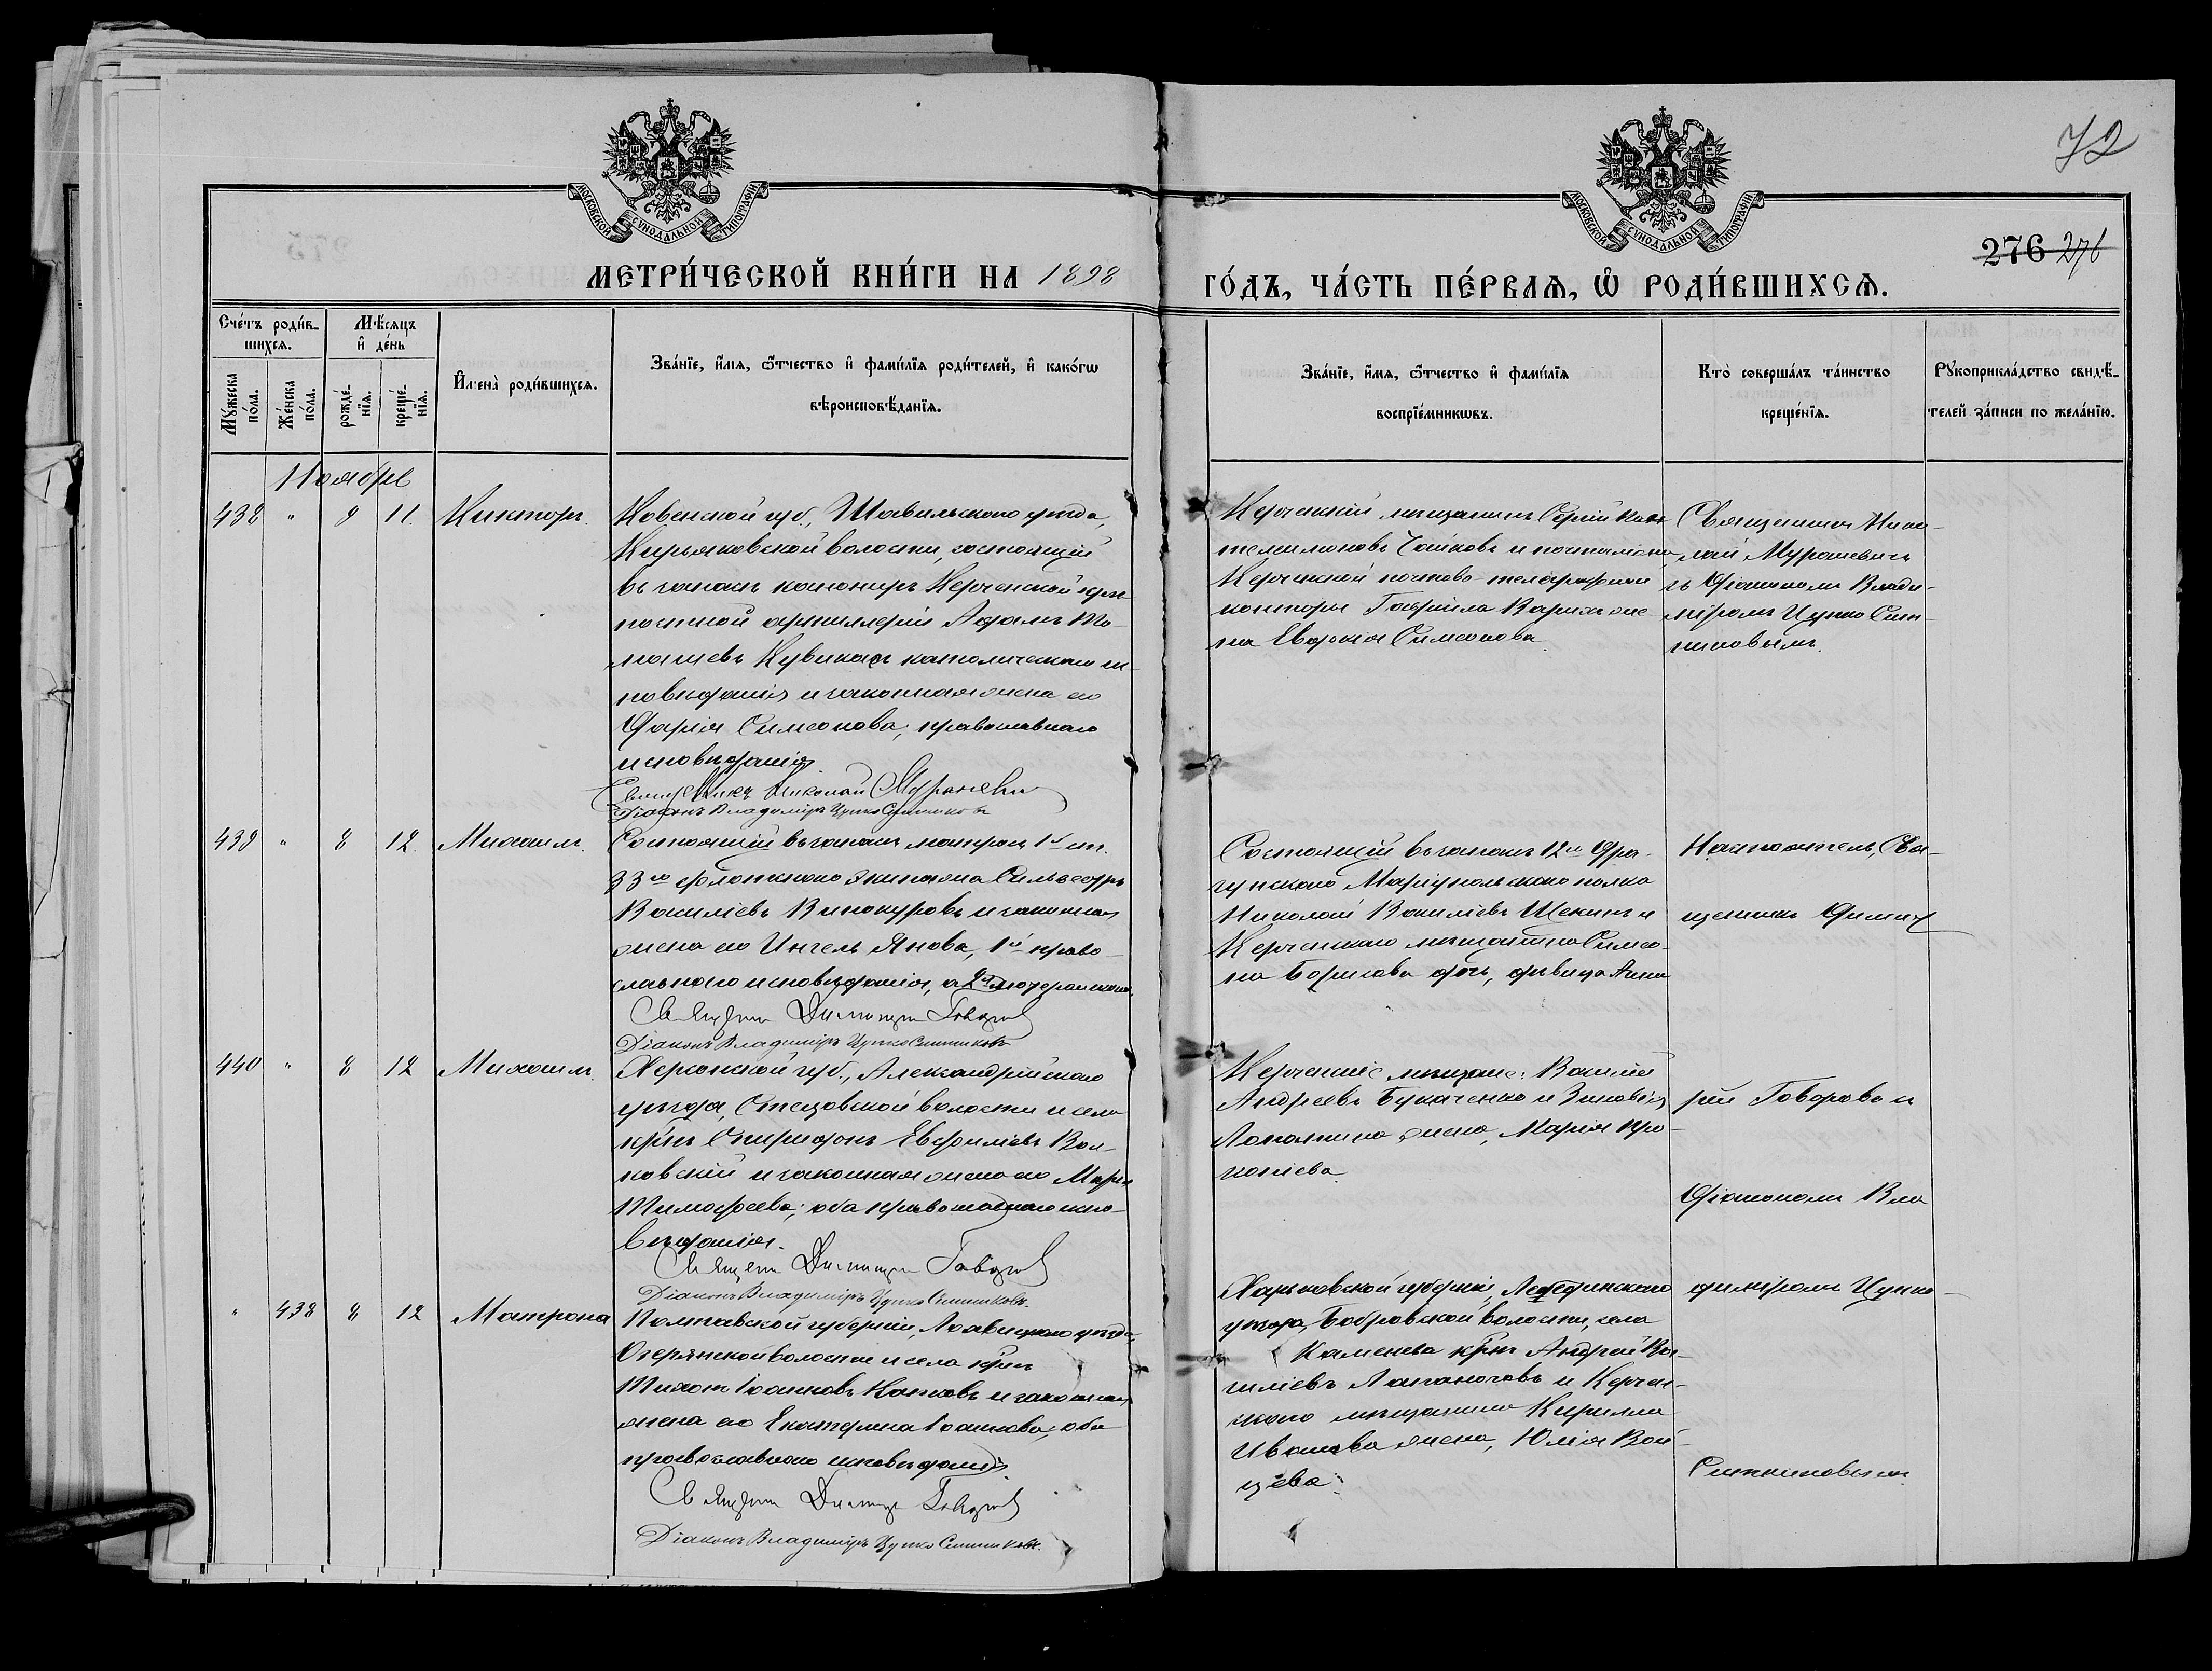 72
МОСКОВСКОЙ СУНОДАЛЬНОЙ ТИПОГРАФІИ
МОСКОВСКОЙ СУНОДАЛЬНОЙ ТИПОГРАФІИ
276 276
МЕТРИ́ЧЕСКОЙ КНИ́ГИ НА 1898
ГО́ДЪ, ЧА́СТЬ ПЕ́РВАѦ, Ѡ҆ РОДИ́ВШИХСѦ.
Сче́тъ роди́в-
шихсѧ.
Мꙋ́жеска
по́ла.
Же́нска
по́ла.
Мѣ́сѧцъ
и҆ де́нь
рожде́-
нїѧ.
креще́-
нїѧ.
И҆мена̀ роди́вшихсѧ.
Зва́нїе, и҆́мѧ, ѻ҆́тчество и҆ фами́лїѧ роди́телей, и҆ како́гѡ
вѣроисповѣ́данїѧ.
Зва́нїе, и҆́мѧ, ѻ҆́тчество и҆ фами́лїѧ
воспрїе́мникѡвъ.
Кто̀ соверша́лъ та́инство
креще́нїѧ.
Рꙋкоприкла́дство свидѣ́-
телей за́писи по жела́нїю.
Ноябрь
438 " 8 11.
Ковенской губ., Шавельскаго уѣзда,
волости, состоящій
въ запасѣ канониръ Керченской крѣ-
постной артиллеріи Адамъ То-
машевъ католическаго ис-
повѣданія и законная жена его
Дарія Симеонова, православнаго
исповѣданія.
Священникъ Николай
Діаконъ Владиміръ Цупко Ситниковъ
Керченскій мѣщанинъ Сергій
Чайковъ и почталіона
Керченской почтово-телеграфной
конторы Гавріила же-
на Евдокія Симеонова.
Священникъ Нико-
лай
съ Діакономъ Влади-
міромъ Цупко Сит-
никовымъ.
439 " 8 12. Михаилъ.
Состоящій въ запасѣ матросъ 1й ст.
33го флотскаго экипажа Сильвестръ
Василіевъ Винокуровъ и законная
жена его Янова, 1й право-
славнаго исповѣданія, а 2я лютеранскаго.
Священникъ Димитрій Говоровъ
Діаконъ Владиміръ Цупко Ситниковъ
Состоящій въ запасѣ 12го Дра-
гунскаго Маріупольскаго полка
Николай Василіевъ Щекинъ и
Керченскаго мѣщанина Симео-
на Борисова дочь, дѣвица Анна
Настоятель, Свя-
щенникъ Димит-
440 " 8 12 Михаилъ.
Херсонской губ., Александрійскаго
уѣзда, волости и села
кр̃нъ Спиридонъ Евфиміевъ
и законная жена его Марія
Тимофеева; оба православнаго испо-
вѣданія.
Священникъ Димитрій Говоровъ
Діаконъ Владиміръ Цупко Ситниковъ.
Керченскіе мѣщане: Василій
Андреевъ и Зиновія
жена, Марія Про-
копіева.
рій Говоровъ съ
Діакономъ Вла
" 438 8 12 Матрона
Полтавской губерніи, уѣзда,
Озерянской волости и села кр̃нъ
Тихонъ Іоанновъ и законная
жена его Екатерина Іоаннова, оба
православнаго исповѣданія.
Священникъ Димитрій Говоровъ
Діаконъ Владиміръ Цупко Ситниковъ.
Харьковской губерніи, Лебединскаго
уѣзда, Бобровской волости, села
Каменева кр̃нъ Андрей Ва-
силіевъ и Керчен-
скаго мѣщанина Кирилла
Иванова жена, Юлія
диміромъ Цупко-
Ситниковымъ